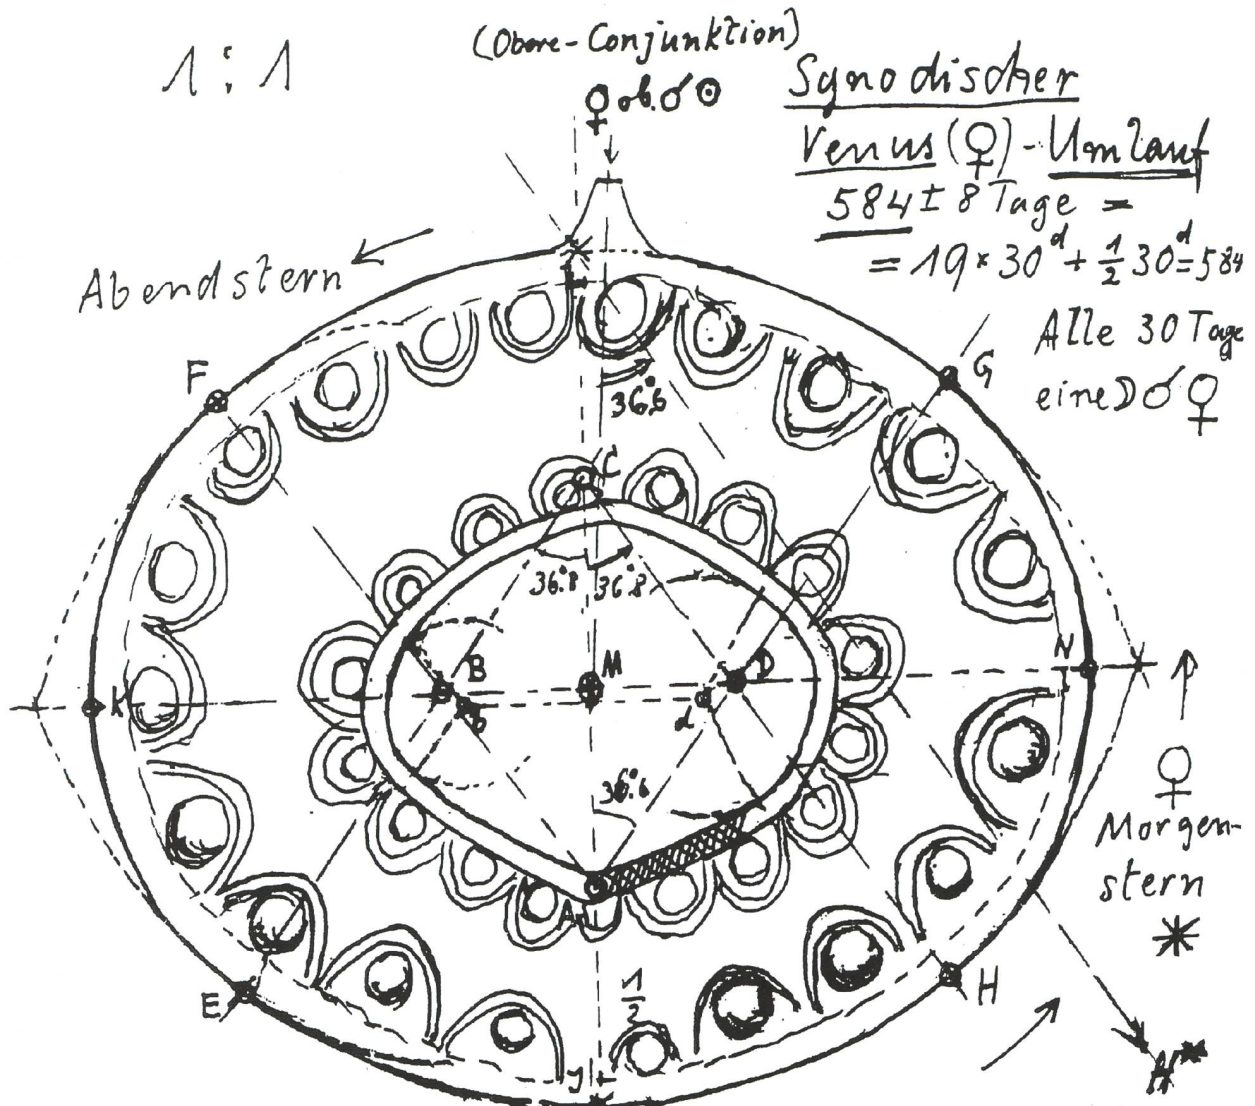 1:1
(Obere-Conjunktion)
♀ ob. ☌ ☉
Synodischer
Venus (♀) - Umlauf
584 ± 8 Tage =
= 19 × 30ᵈ + ½ 30ᵈ = 584
Alle 30 Tage
eine ☽ ☌ ♀
Abendstern
F
G
36°6
C
36°8 36°8
B
M
D
N
K
b
d
♀
Morgen-
stern
36°6
A
E
½
H
J
H*